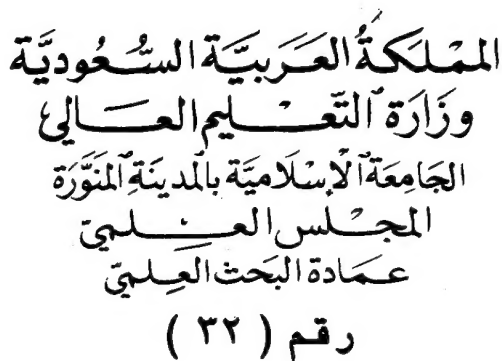 المملكة العربية السعودية
وزارة التعليم العالي
الجامعة الإسلامية بالمدينة المنورة
المجلس العلمي
عمادة البحث العلمي
رقم ( ٣٢ )